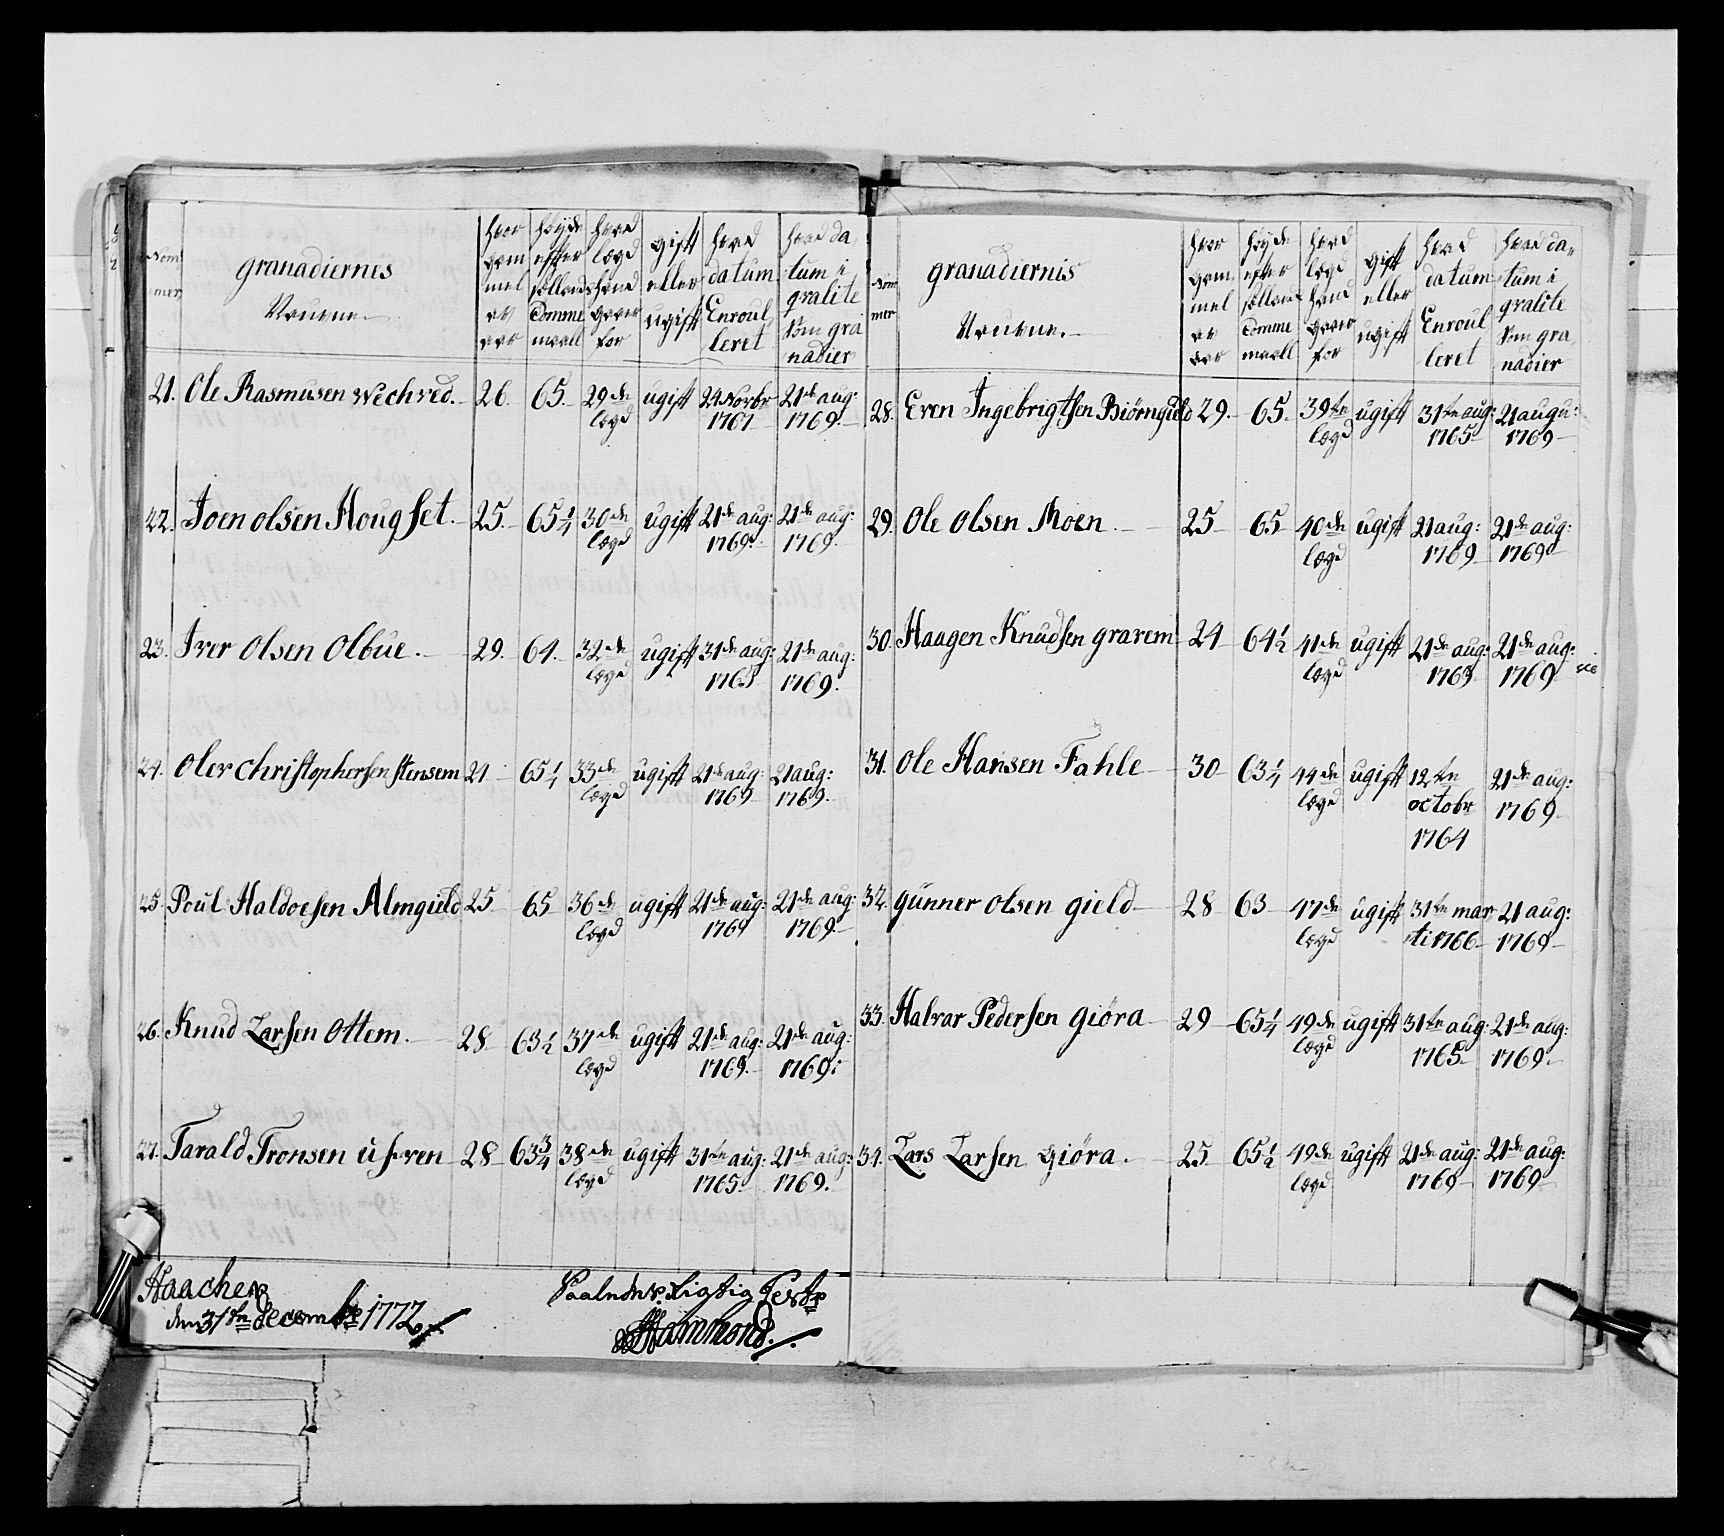 Nom mer granadiernes Nvune hvor gam mel er aar høyde efter sællands Comme maall hvad lægd hand giører for gift eller ugift hvad datum Enroulleret hvad datum i qualite som granadier
21. Ole Rasmusen Wechved. 26. 65. 29de lægd ugift 24 Novbr 1767 21de aug: 1769.
22. Joen olsen Hougset. 25. 65 1/4 30de lægd ugift 21de aug: 1769. 21de aug: 1769.
23. Iver Olsen Olbue. 29. 64. 32de lægd ugift 31de aug: 1765 21de aug: 1769.
24. Oler Christophersen stensem 21 65 1/4 33de lægd ugift 21de aug: 1769 21 aug: 1769.
25. Poul Haldoesen Almguld 25 65 36de lægd ugift 21de aug: 1769 21de aug: 1769
26. Knud Larsen Ottem. 28 63 1/2 37de lægd ugift 21de aug: 1769. 21de aug: 1769:
27. Tarald Tronsen 28 63 3/4 38de lægd ugift 31te aug: 1765 21de aug: 1769.
Haachen
den 31te decembr 1772
Rigtig Test
Hammond.
Nom mer granadiernis Nvune. hvor gam mel er aar høyde efter sælland Comme maall hvad lægd hand giører for gift eller ugift hvad datum Enroulleret hvad datum i qualite som granadier
28. Even Ingebrigtsen Biørnguld 29. 65. 39te lægd ugift 31te aug: 1765 21 augu: 1769
29. Ole Olsen Moen 25 65 40de lægd ugift 21 aug: 1769 21de aug: 1769
30. Haagen Knudsen gravem 24 64 1/2 41de lægd ugift 21de aug: 1769 21de aug: 1769
31. Ole Hansen Fahle 30 63 1/4 44de lægd ugift 12te octobr 1764 21de aug: 1769
32. gunner olsen gield 28 63 47de lægd ugift 31te marti 1766 21 aug: 1769
33. Halvar Pedersen giøra 29 65 1/4 49de lægd ugift 31te aug: 1765 21de aug: 1769
34. Lars Larsen giøra. 25 65 1/2 49de lægd ugift 21de aug: 1769 21de aug: 1769